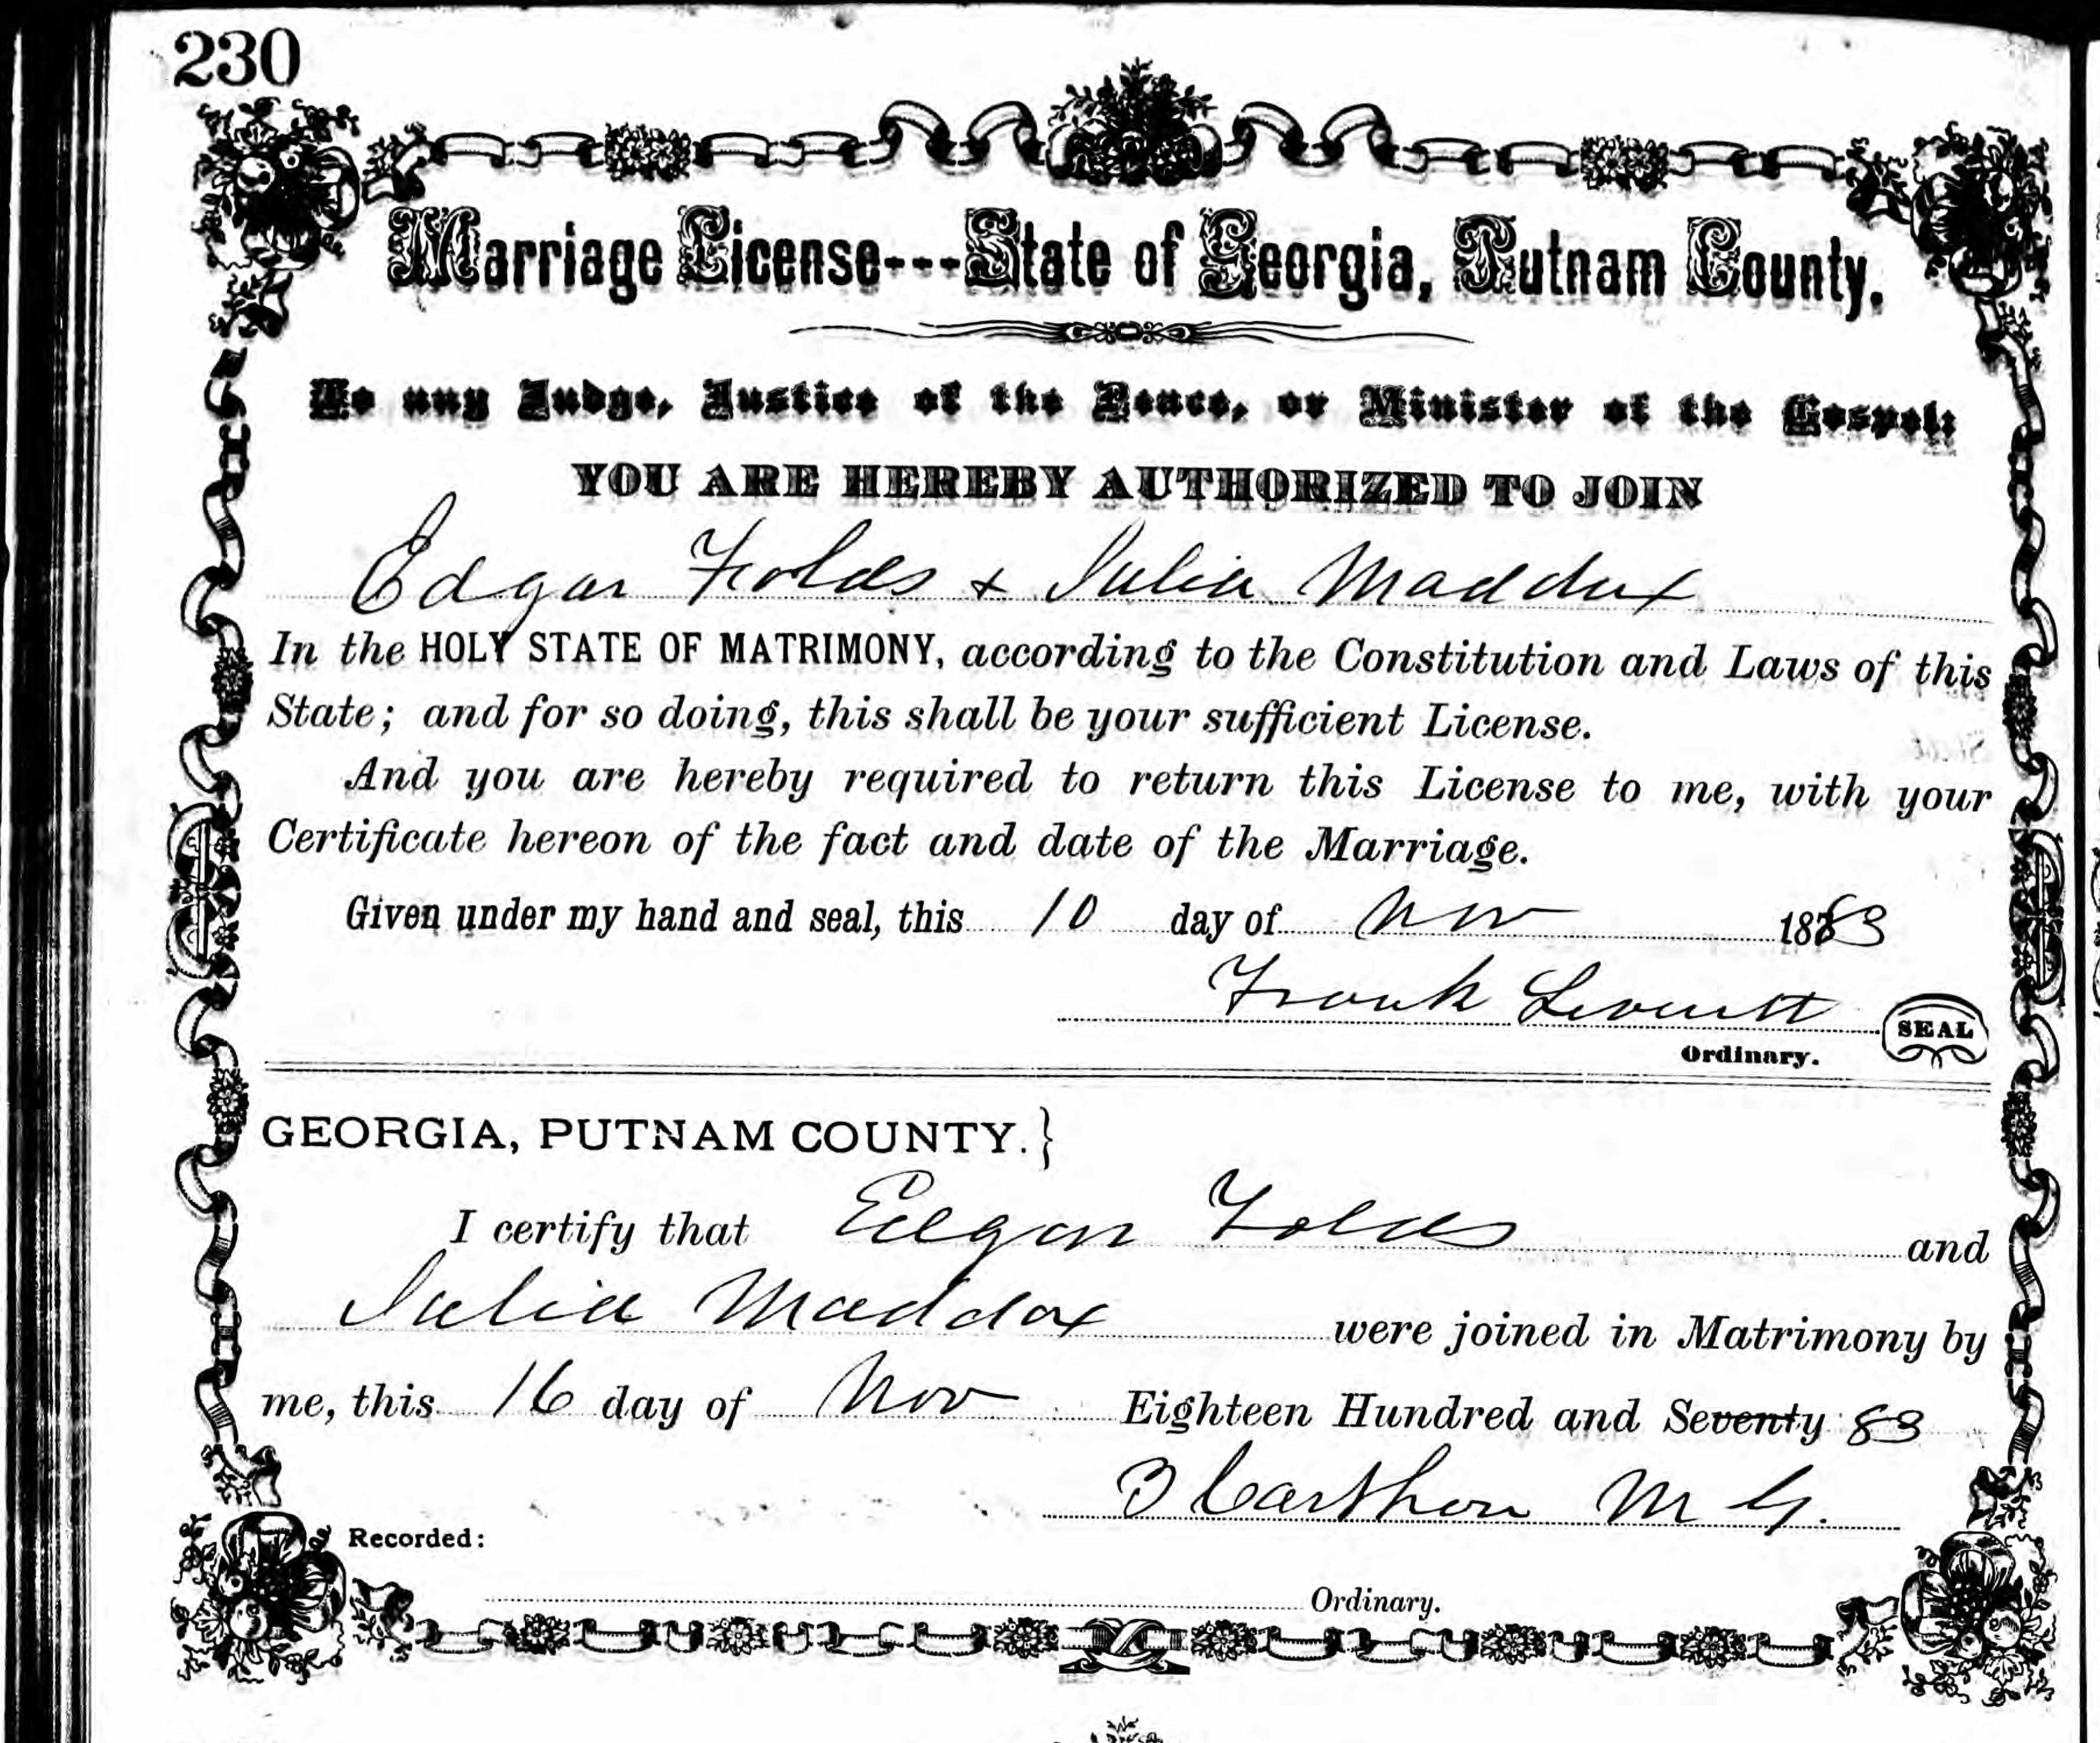 230
Marriage License---State of Georgia, Putnam County.
To any Judge, Justice of the Peace, or Minister of the Gospel:
YOU ARE HEREBY AUTHORIZED TO JOIN
Edgar Folds + Julia Maddux
In the HOLY STATE OF MATRIMONY, according to the Constitution and Laws of this
State; and for so doing, this shall be your sufficient License.
And you are hereby required to return this License to me, with your
Certificate hereon of the fact and date of the Marriage.
Given under my hand and seal, this 10 day of Nov 1883
Frank Leverett
SEAL
Ordinary.
GEORGIA, PUTNAM COUNTY.}
I certify that Edgar Folds and
Julia Maddox were joined in Matrimony by
me, this 16 day of Nov Eighteen Hundred and Seventy 83
Carthon M G.
Recorded:
Ordinary.